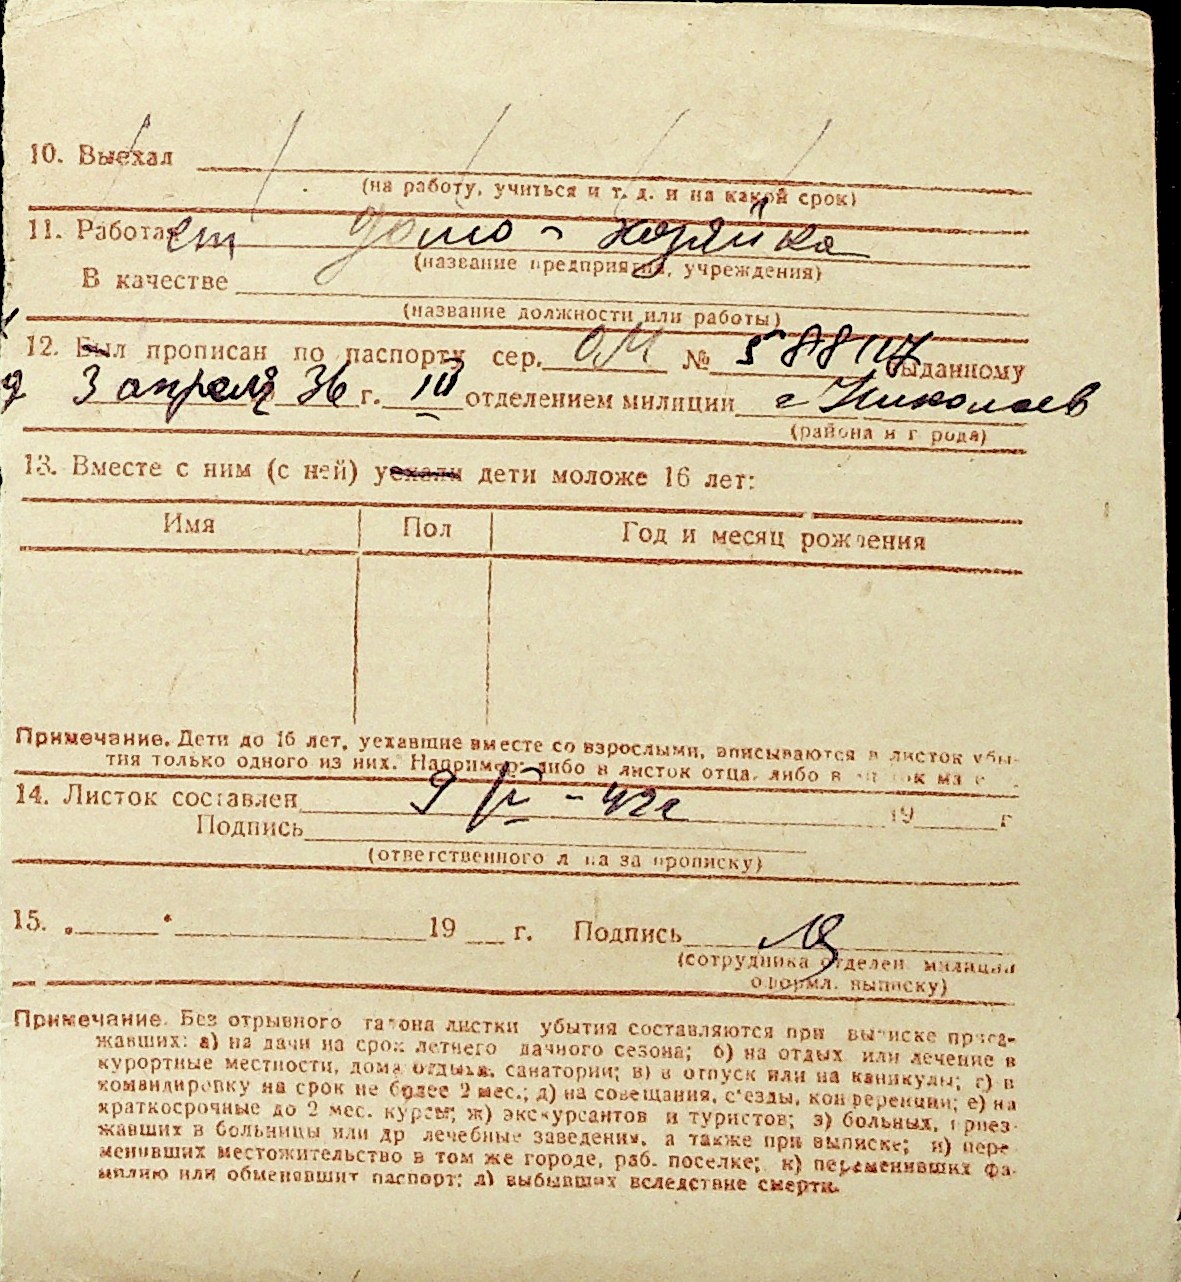 10. Выехал
(на работу, учиться и т. д. и на какой срок)
11. Работает домо-хозяйка
(название предприятия, учреждения)
В качестве
(название должности или работы)
12. Был прописан по паспорту сер. ОМ № 588117 выданному
3 апреля 36 г. III отделением милиции г Николаев
(района и города)
13. Вместе с ним (с ней) уехали дети моложе 16 лет:
Имя Пол Год и месяц рождения
Примечание. Дети до 16 лет, уехавшие вместе со взрослыми, вписываются в листок убы-
тия только одного из них. Например: либо в листок отца, либо в
14. Листок составлен 9 IV - 42г 19 г
Подпись
(ответственного лица за прописку)
15. 19 г. Подпись
(сотрудника отделен. милиции
оформл. выписку)
Примечание. Без отрывного талона листки убытия составляются при выписке приез-
жавших: а) на дачи на срок летнего дачного сезона; б) на отдых или лечение в
курортные местности, дома отдыха, санатории; в) в отпуск или на каникулы; г) в
командировку на срок не более 2 мес.; д) на совещания, с'езды, конференции; е) на
краткосрочные до 2 мес. курсы; ж) экскурсантов и туристов; з) больных, приез-
жавших в больницы или др лечебные заведения, а также при выписке; и) пере-
менивших местожительство в том же городе, раб. поселке; к) переменивших фа-
милию или обменявших паспорт; л) выбывших вследствие смерти.